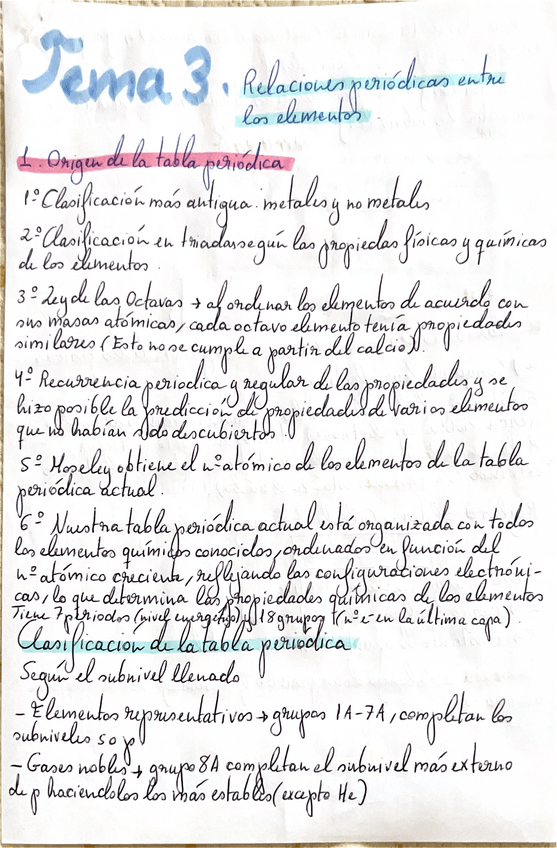 Tema 3. Relaciones periódicas entre
los elementos
1. Origen de la tabla periódica
1º Clasificación más antigua. metales y no metales
2º Clasificación en triadas según las propiedas físicas y químicas
de los elementos.
3º Ley de las Octavas → al ordenar los elementos de acuerdo con
sus masas atómicas, cada octavo elemento tenía propiedades
similares (Esto no se cumple a partir del calcio).
4º Recurrencia periodica y regular de las propiedades y se
hizo posible la predicción de propiedades de varios elementos
que no habían sido descubiertos.
5º Moseley obtiene el nº atómico de los elementos de la tabla
periódica actual.
6º Nuestra tabla periódica actual está organizada con todos
los elementos químicos conocidos, ordenados en función del
nº atómico creciente, reflejando las configuraciones electróni-
cas, lo que determina las propiedades químicas de los elementos
Tiene 7 periodos (nivel energético) y 18 grupos (nº e- en la última capa).
Clasificación de la tabla periódica
Según el subnivel llenado
- Elementos representativos → grupos 1A-7A, completan los
subniveles s o p
- Gases nobles → grupo 8A completan el subnivel más externo
de p haciendolos los más estables (excepto He)